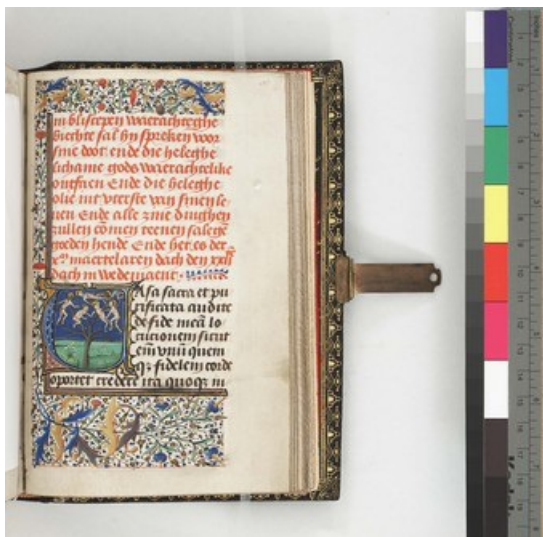 in bliscepen waerachteghe
biechte sal hy spreken voor
sine doot ende die heleghe
lichame gods waerachtelike
ontfaen Ende die heleghe
olie int uterste van sinen le
uen Ende alle zine dinghen
zullen comen teenen saleghe
goeden hende Ende het es der
maertelaren dach den
dach in wedemaent
Asa sacra et pu
rificata audite
de fide mea lo
cutionem sicut
em vnu quem
q; fidelem corde
oportet credere ita quoq; m